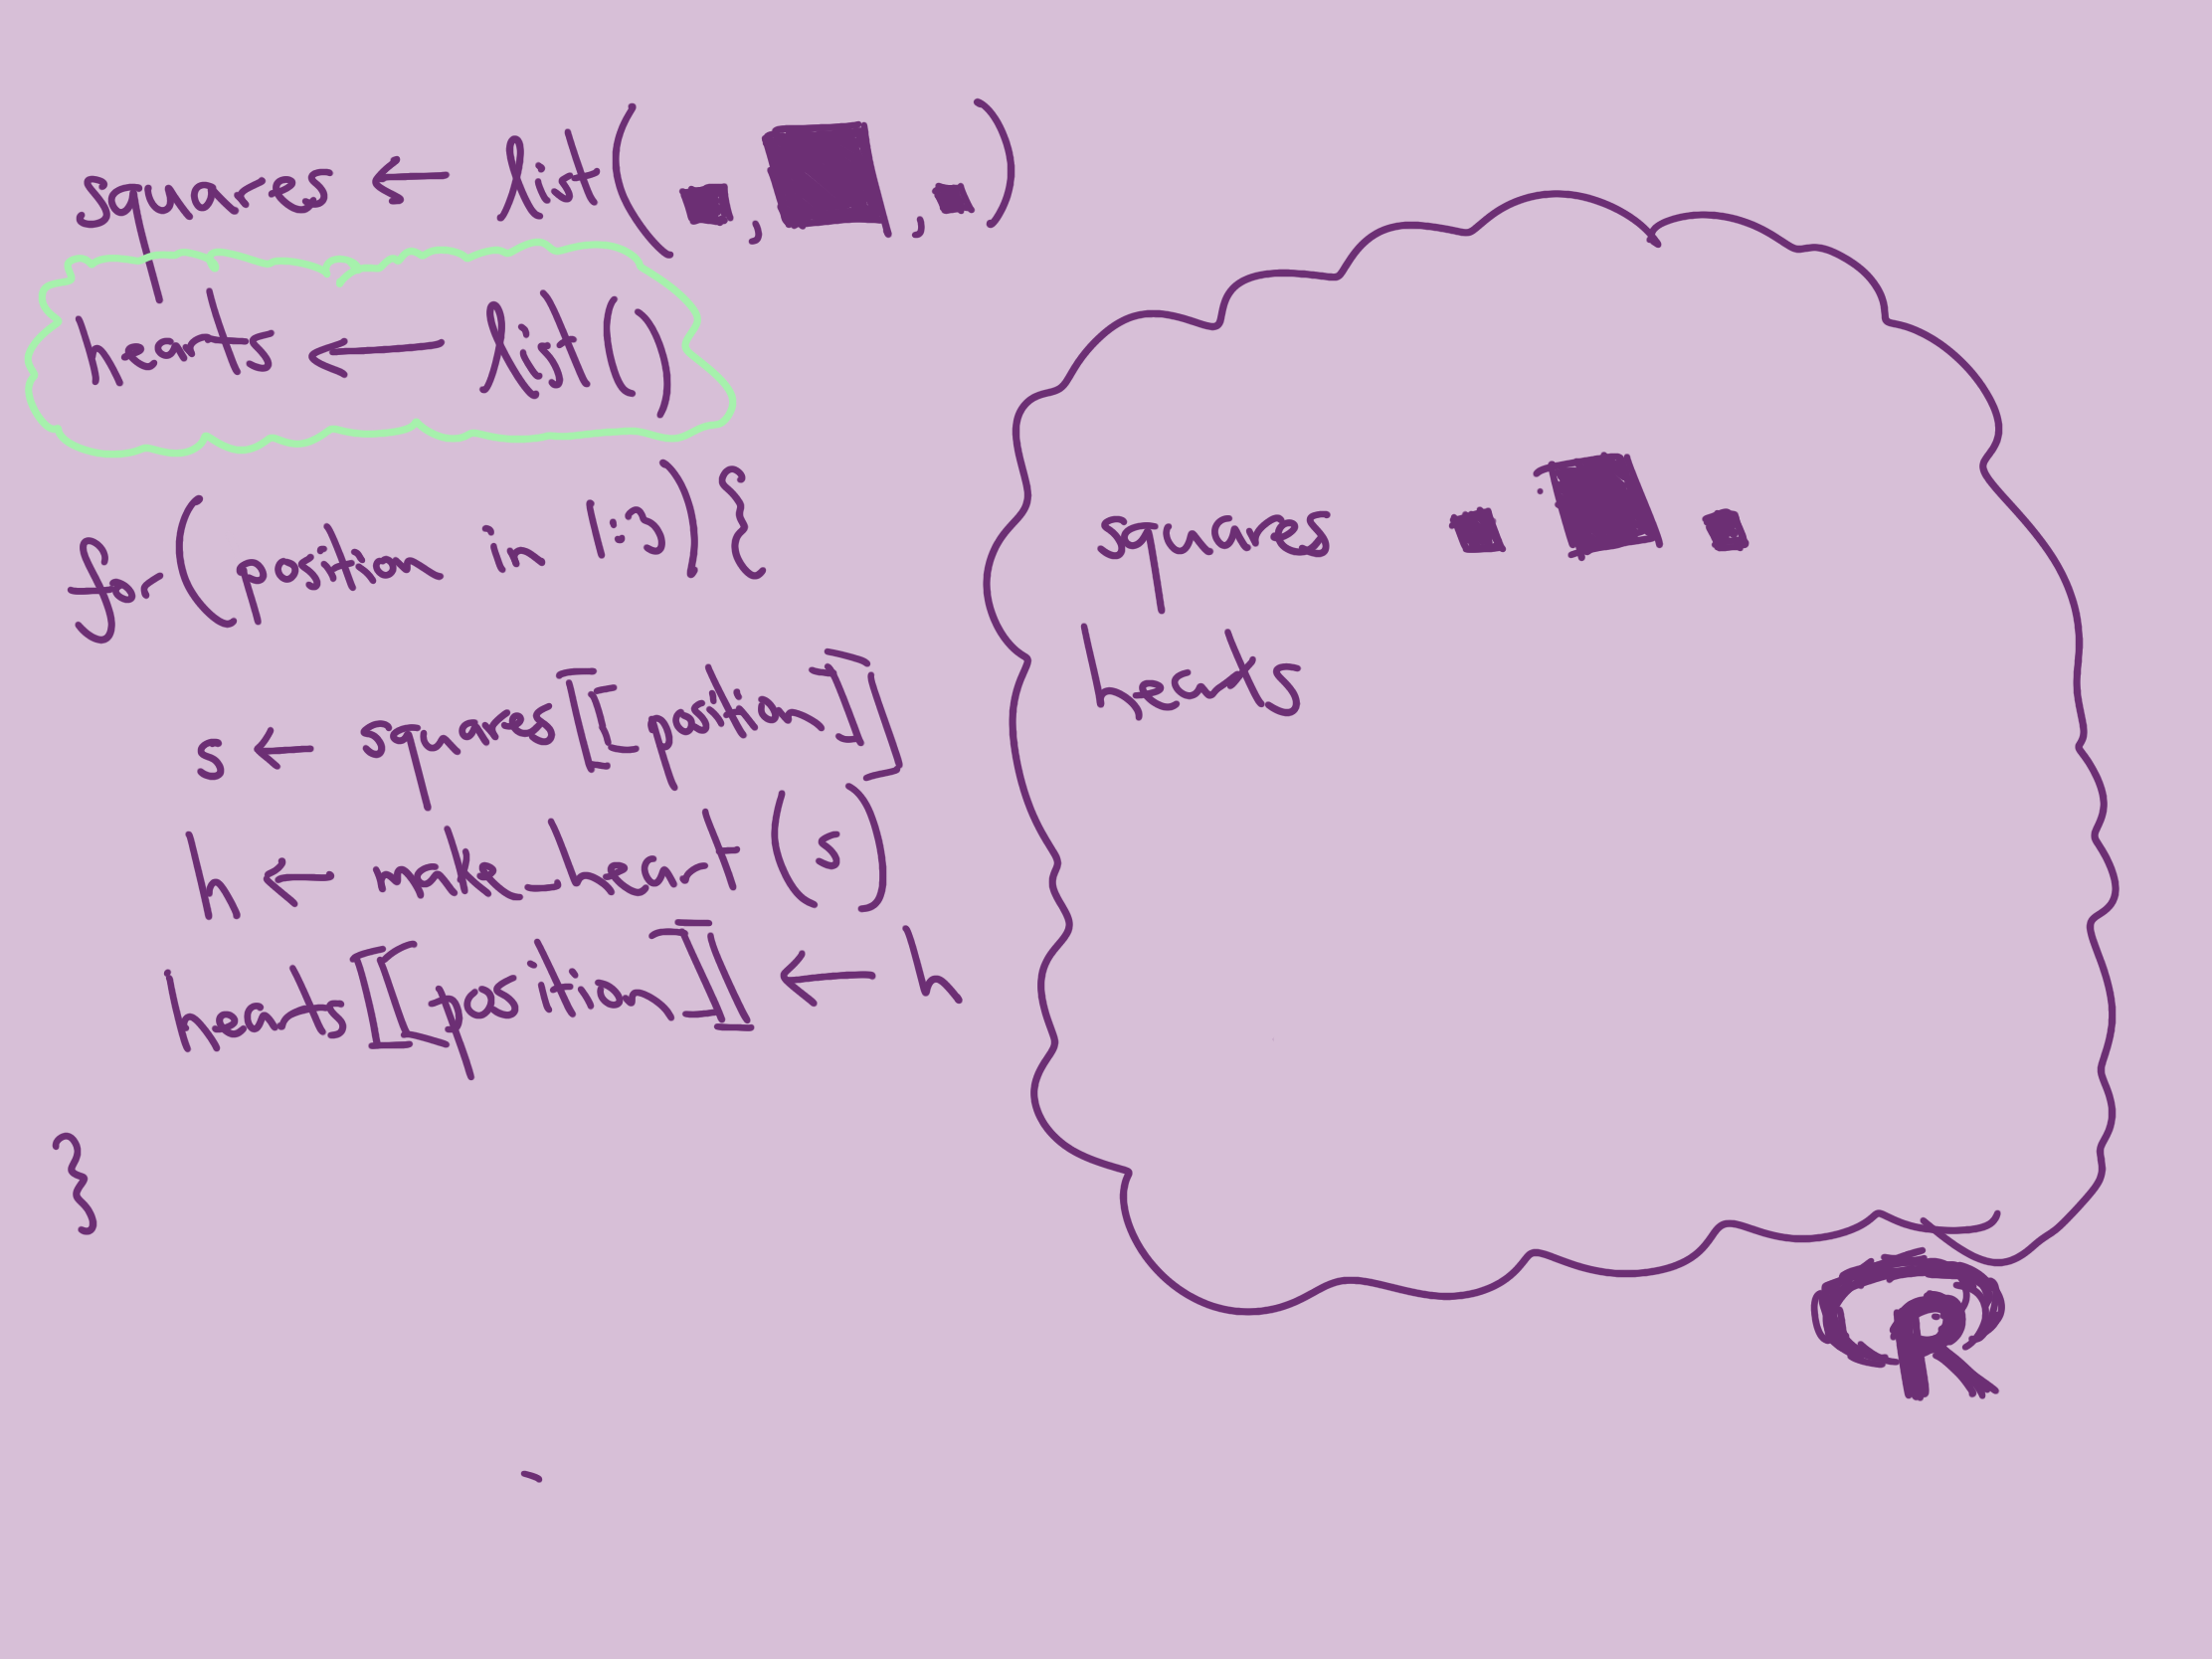 squares ← list( ■ , ■ , ■ )
hearts ← list()
for (position in 1:3) {
s ← squares[[position]]
h ← make_heart(s)
hearts[[position]] ← h
}
squares ■ ■ ■
hearts
R